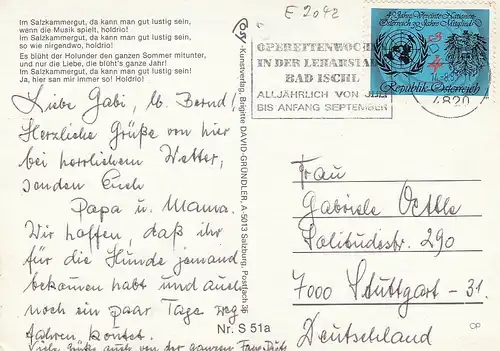 Im Salzkammergut, da kann man gut lustig sein,
wenn die Musik spielt, holdrio!
Im Salzkammergut, da kann man gut lustig sein,
so wie nirgendwo, holdrio!
Es blüht der Holunder den ganzen Sommer mitunter,
und nur die Liebe, die blüht's ganze Jahr!
Im Salzkammergut, da kann man gut lustig sein,
ja, hier san mir immer so! Holdrio!
Liebe Gabi, lb. Bernd!
Herzliche Grüße von hier
bei herrlichem Wetter,
senden Euch
Papa u. Mama.
Wir hoffen, daß ihr
für die Hunde jemand
bekommen habt und auch
noch ein paar Tage weg
fahren könnt.
Viele Grüße auch von der ganzen Fam.
Cosy-Kunstverlag, Brigitte DAVID-GRÜNDLER, A-5013 Salzburg, Postfach 36
Nr. S 51a
E 2042
OPERETTENWOCHEN
IN DER LEHARSTADT
BAD ISCHL
ALLJÄHRLICH VON JULI
BIS ANFANG SEPTEMBER
40 Jahre Vereinte Nationen
Österreich 30 Jahre Mitglied
S 4
Republik Österreich
4820
Frau
Gabriele Oettle
Solitudestr. 290
7000 Stuttgart - 31
Deutschland